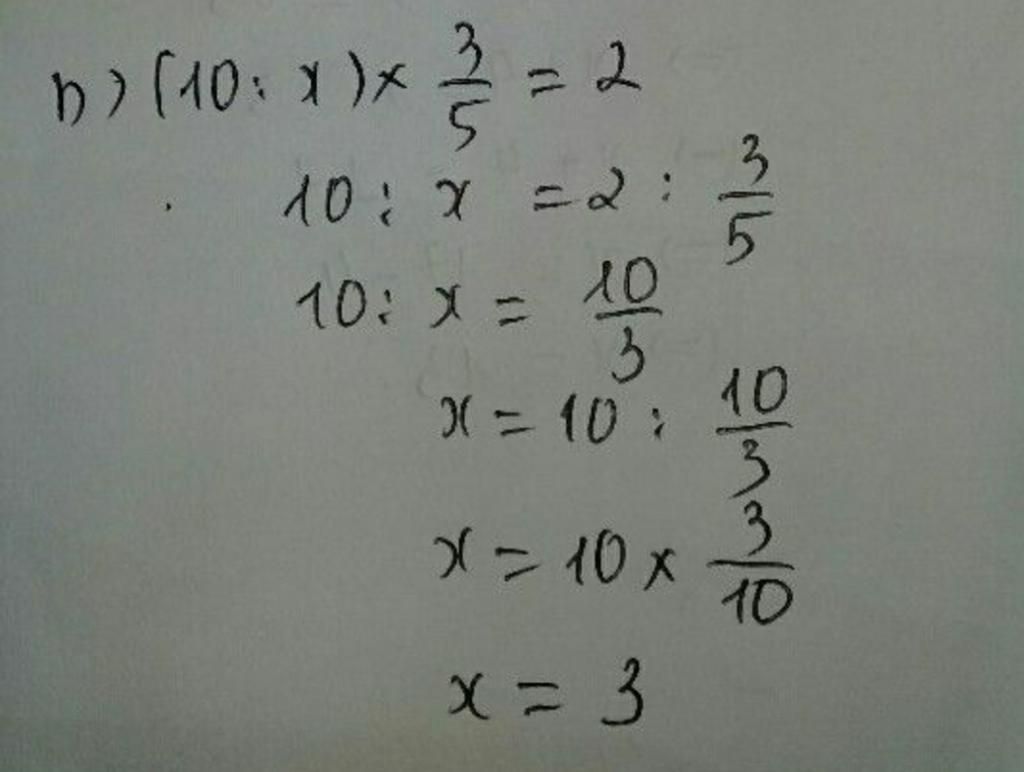 h) (10 : x) × 3/5 = 2
10 : x = 2 : 3/5
10 : x = 10/3
x = 10 : 10/3
x = 10 × 3/10
x = 3